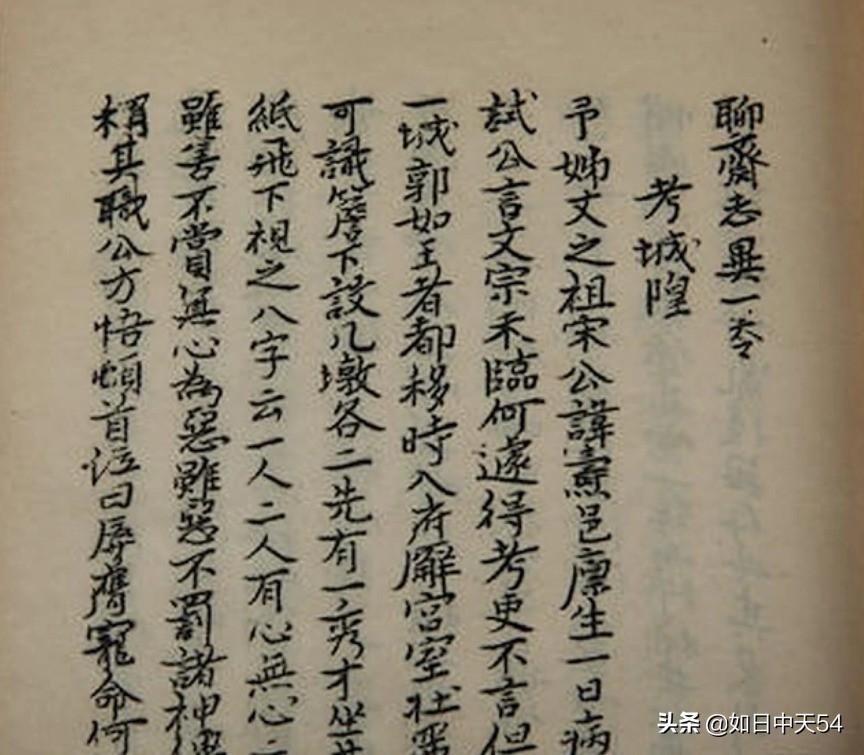 聊齋志異一卷
考城隍
予姊丈之祖宋公諱燾邑廪生一日病
試公言文宗未臨何遽得考吏不言但
一城郭如王者都移時入府廨宮室壯
可識簷下設几墩各二先有一秀才坐
紙飛下視之八字云一人二人有心無心
雖善不賞無心為惡雖惡不罰諸神
稱其職公方悟頓首泣曰辱膺寵命何
头条 @如日中天54